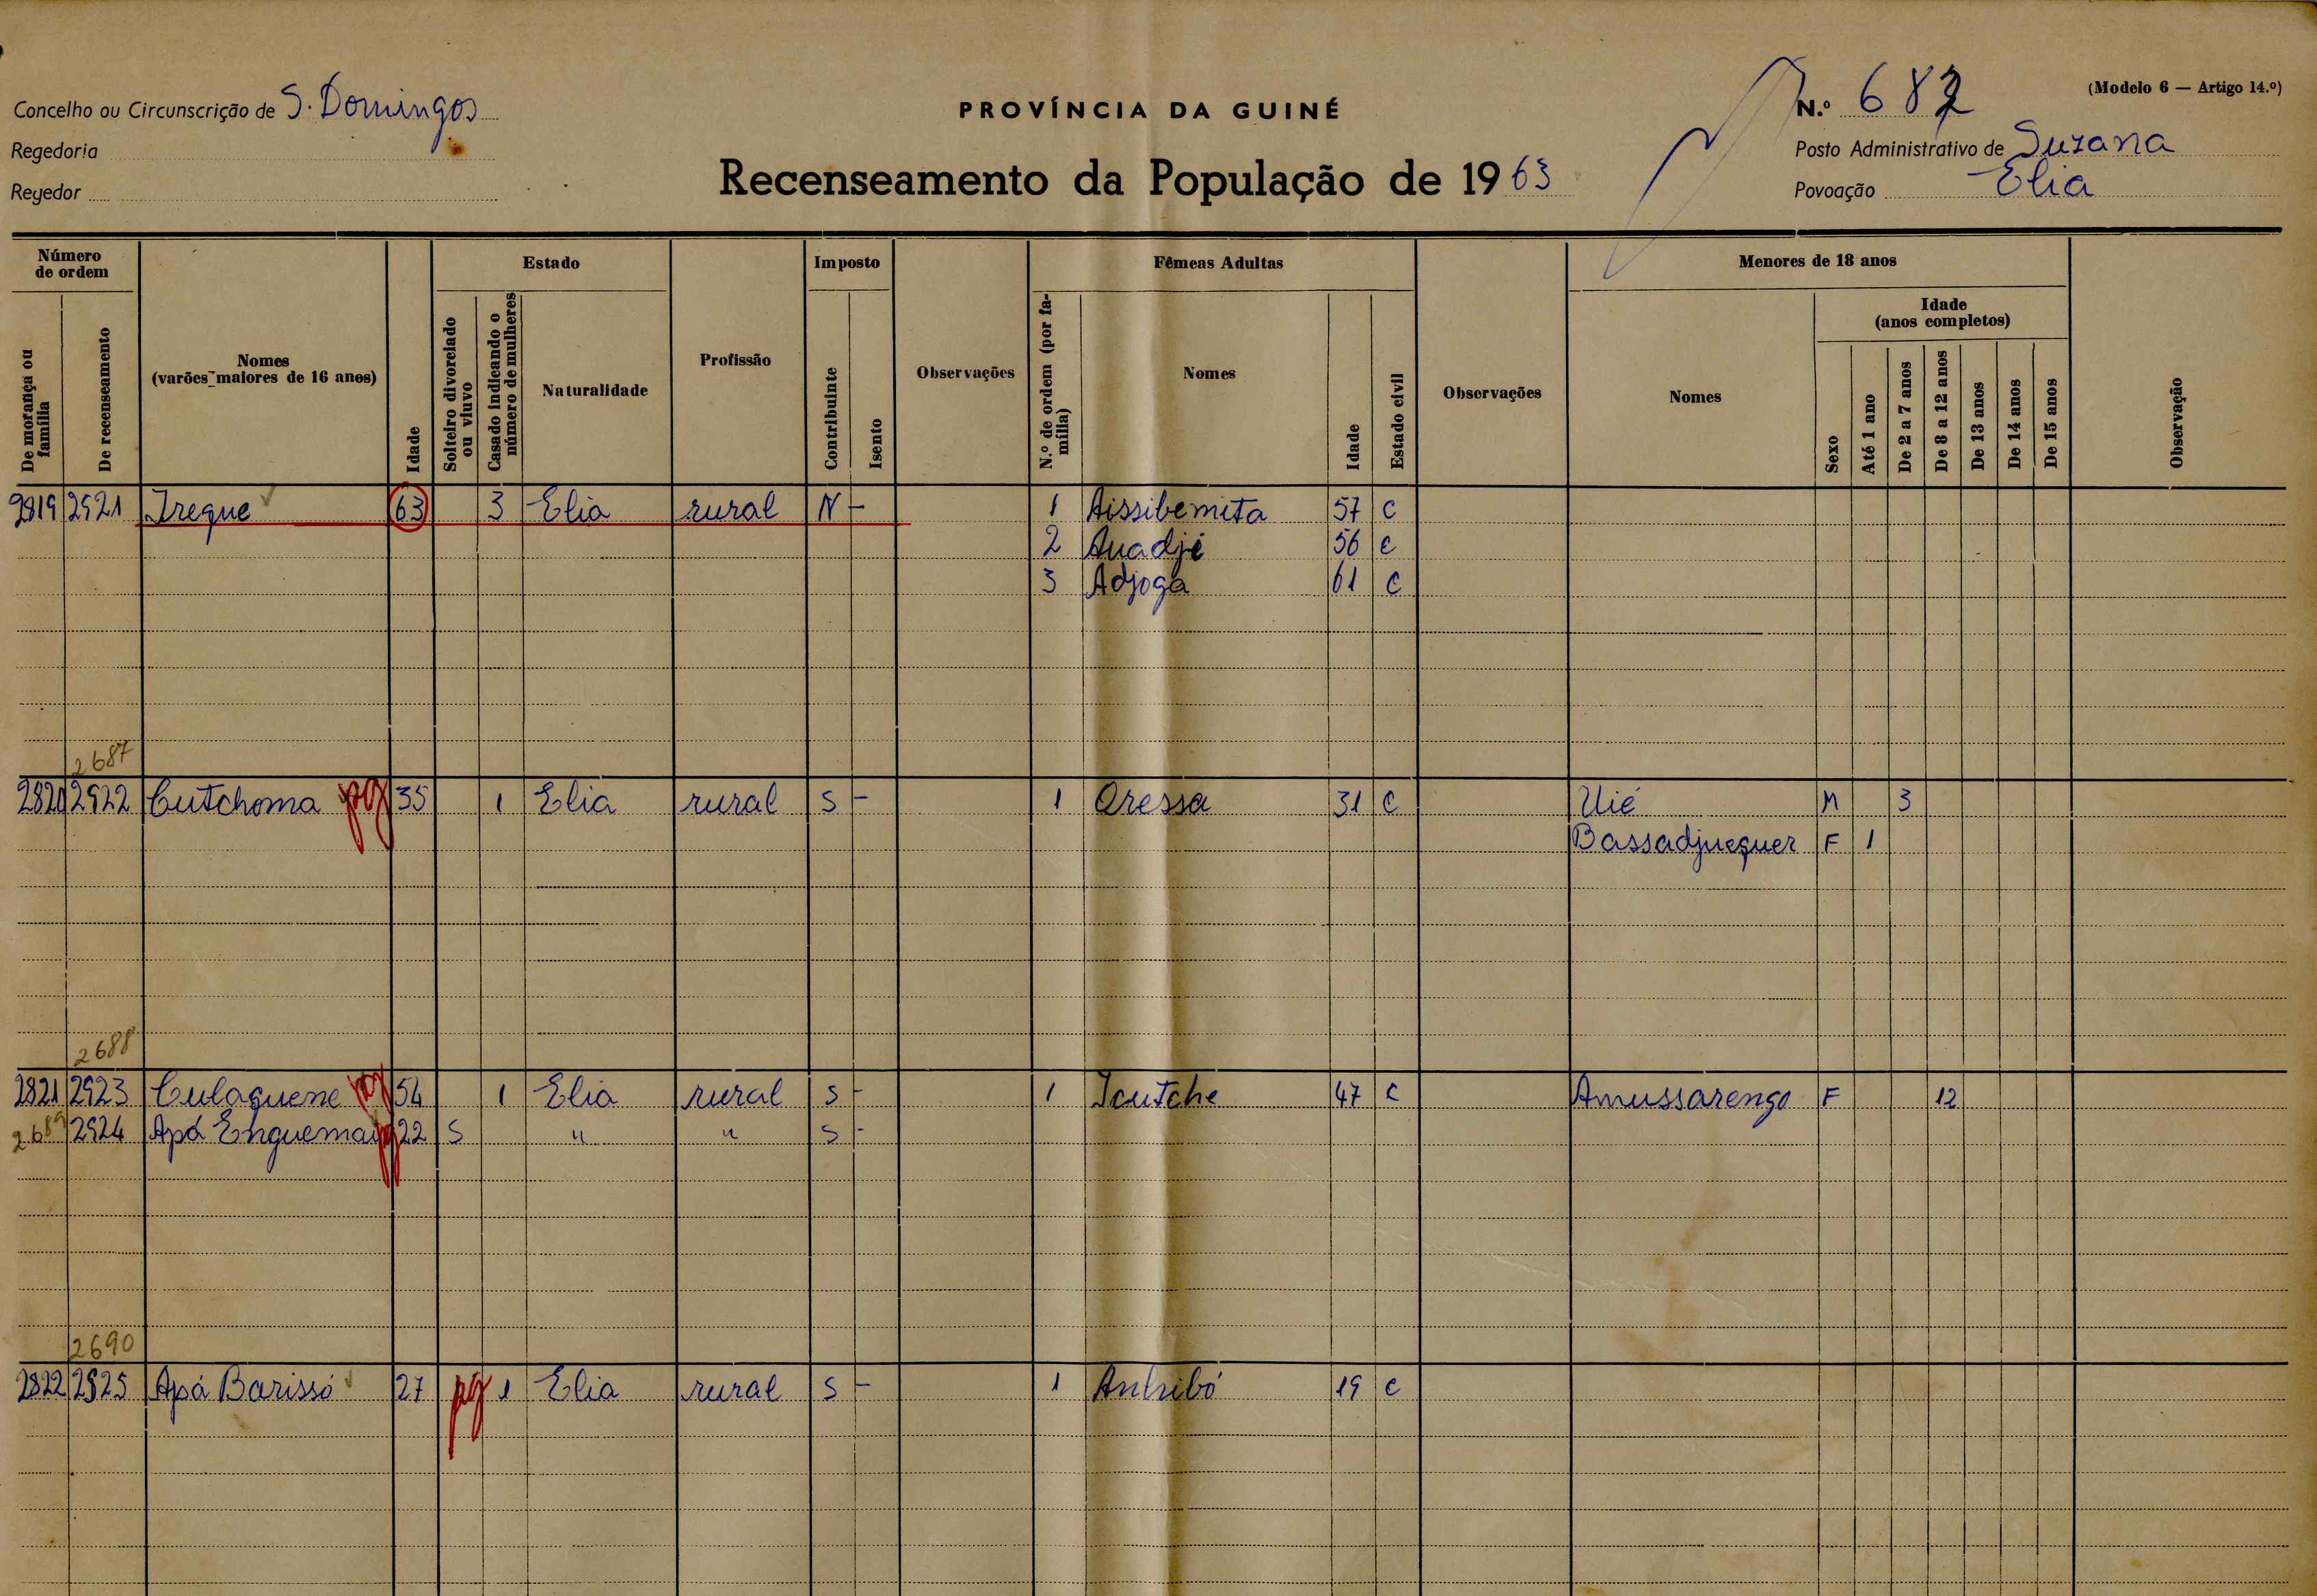 Concelho ou Circunscrição de S. Domingos
Regedoria
Regedor
PROVÍNCIA DA GUINÉ
Recenseamento da População de 1963
(Modelo 6 — Artigo 14.º)
N.º 682
Posto Administrativo de Suzana
Povoação Elia
Número de ordem
De morança ou família
De recenseamento
Nomes (varões maiores de 16 anos)
Idade
Estado
Solteiro divorciado ou viuvo
Casado indicando o número de mulheres
Naturalidade
Profissão
Imposto
Contribuinte
Isento
Observações
Fêmeas Adultas
N.º de ordem (por família)
Nomes
Idade
Estado civil
Observações
Menores de 18 anos
Nomes
Sexo
Idade (anos completos)
Até 1 ano
De 2 a 7 anos
De 8 a 12 anos
De 13 anos
De 14 anos
De 15 anos
Observação
2819 2921 Ireque 63 3 Elia rural N - 1 Aissibemita 57 C
2 Auadjé 56 C
3 Adjoga 61 C
2687
2820 2922 Cutchoma pg 35 1 Elia rural S - 1 Oressa 31 C Uié M 3
Bassadjuequer F 1
2688
2821 2923 Culaquene pg 54 1 Elia rural S - 1 Icutche 47 C Amussarengo F 12
2689 2924 Apá Enguema pg 22 S " " S -
2690
2822 2925 Apá Barissó 27 pg 1 Elia rural S - 1 19 C